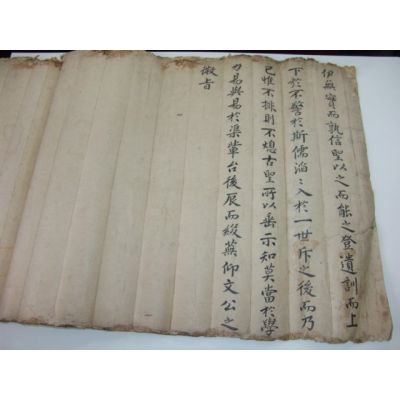 伊無實而孰信聖以之而能之登遺訓而上
下於不警於斯儒滔〻入於一世斥之後而乃
已惟不排則不熄古聖所以垂示知莫當於學
力易與易於渠輩台後辰而綴蕪仰文公之
徽旨